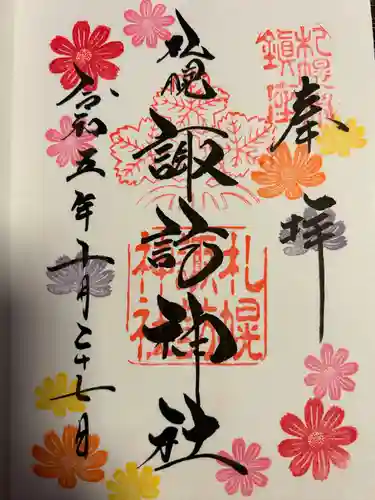 奉拝
札幌鎮座
札幌
諏訪神社
札幌諏訪神社
令和五年十月二十七日